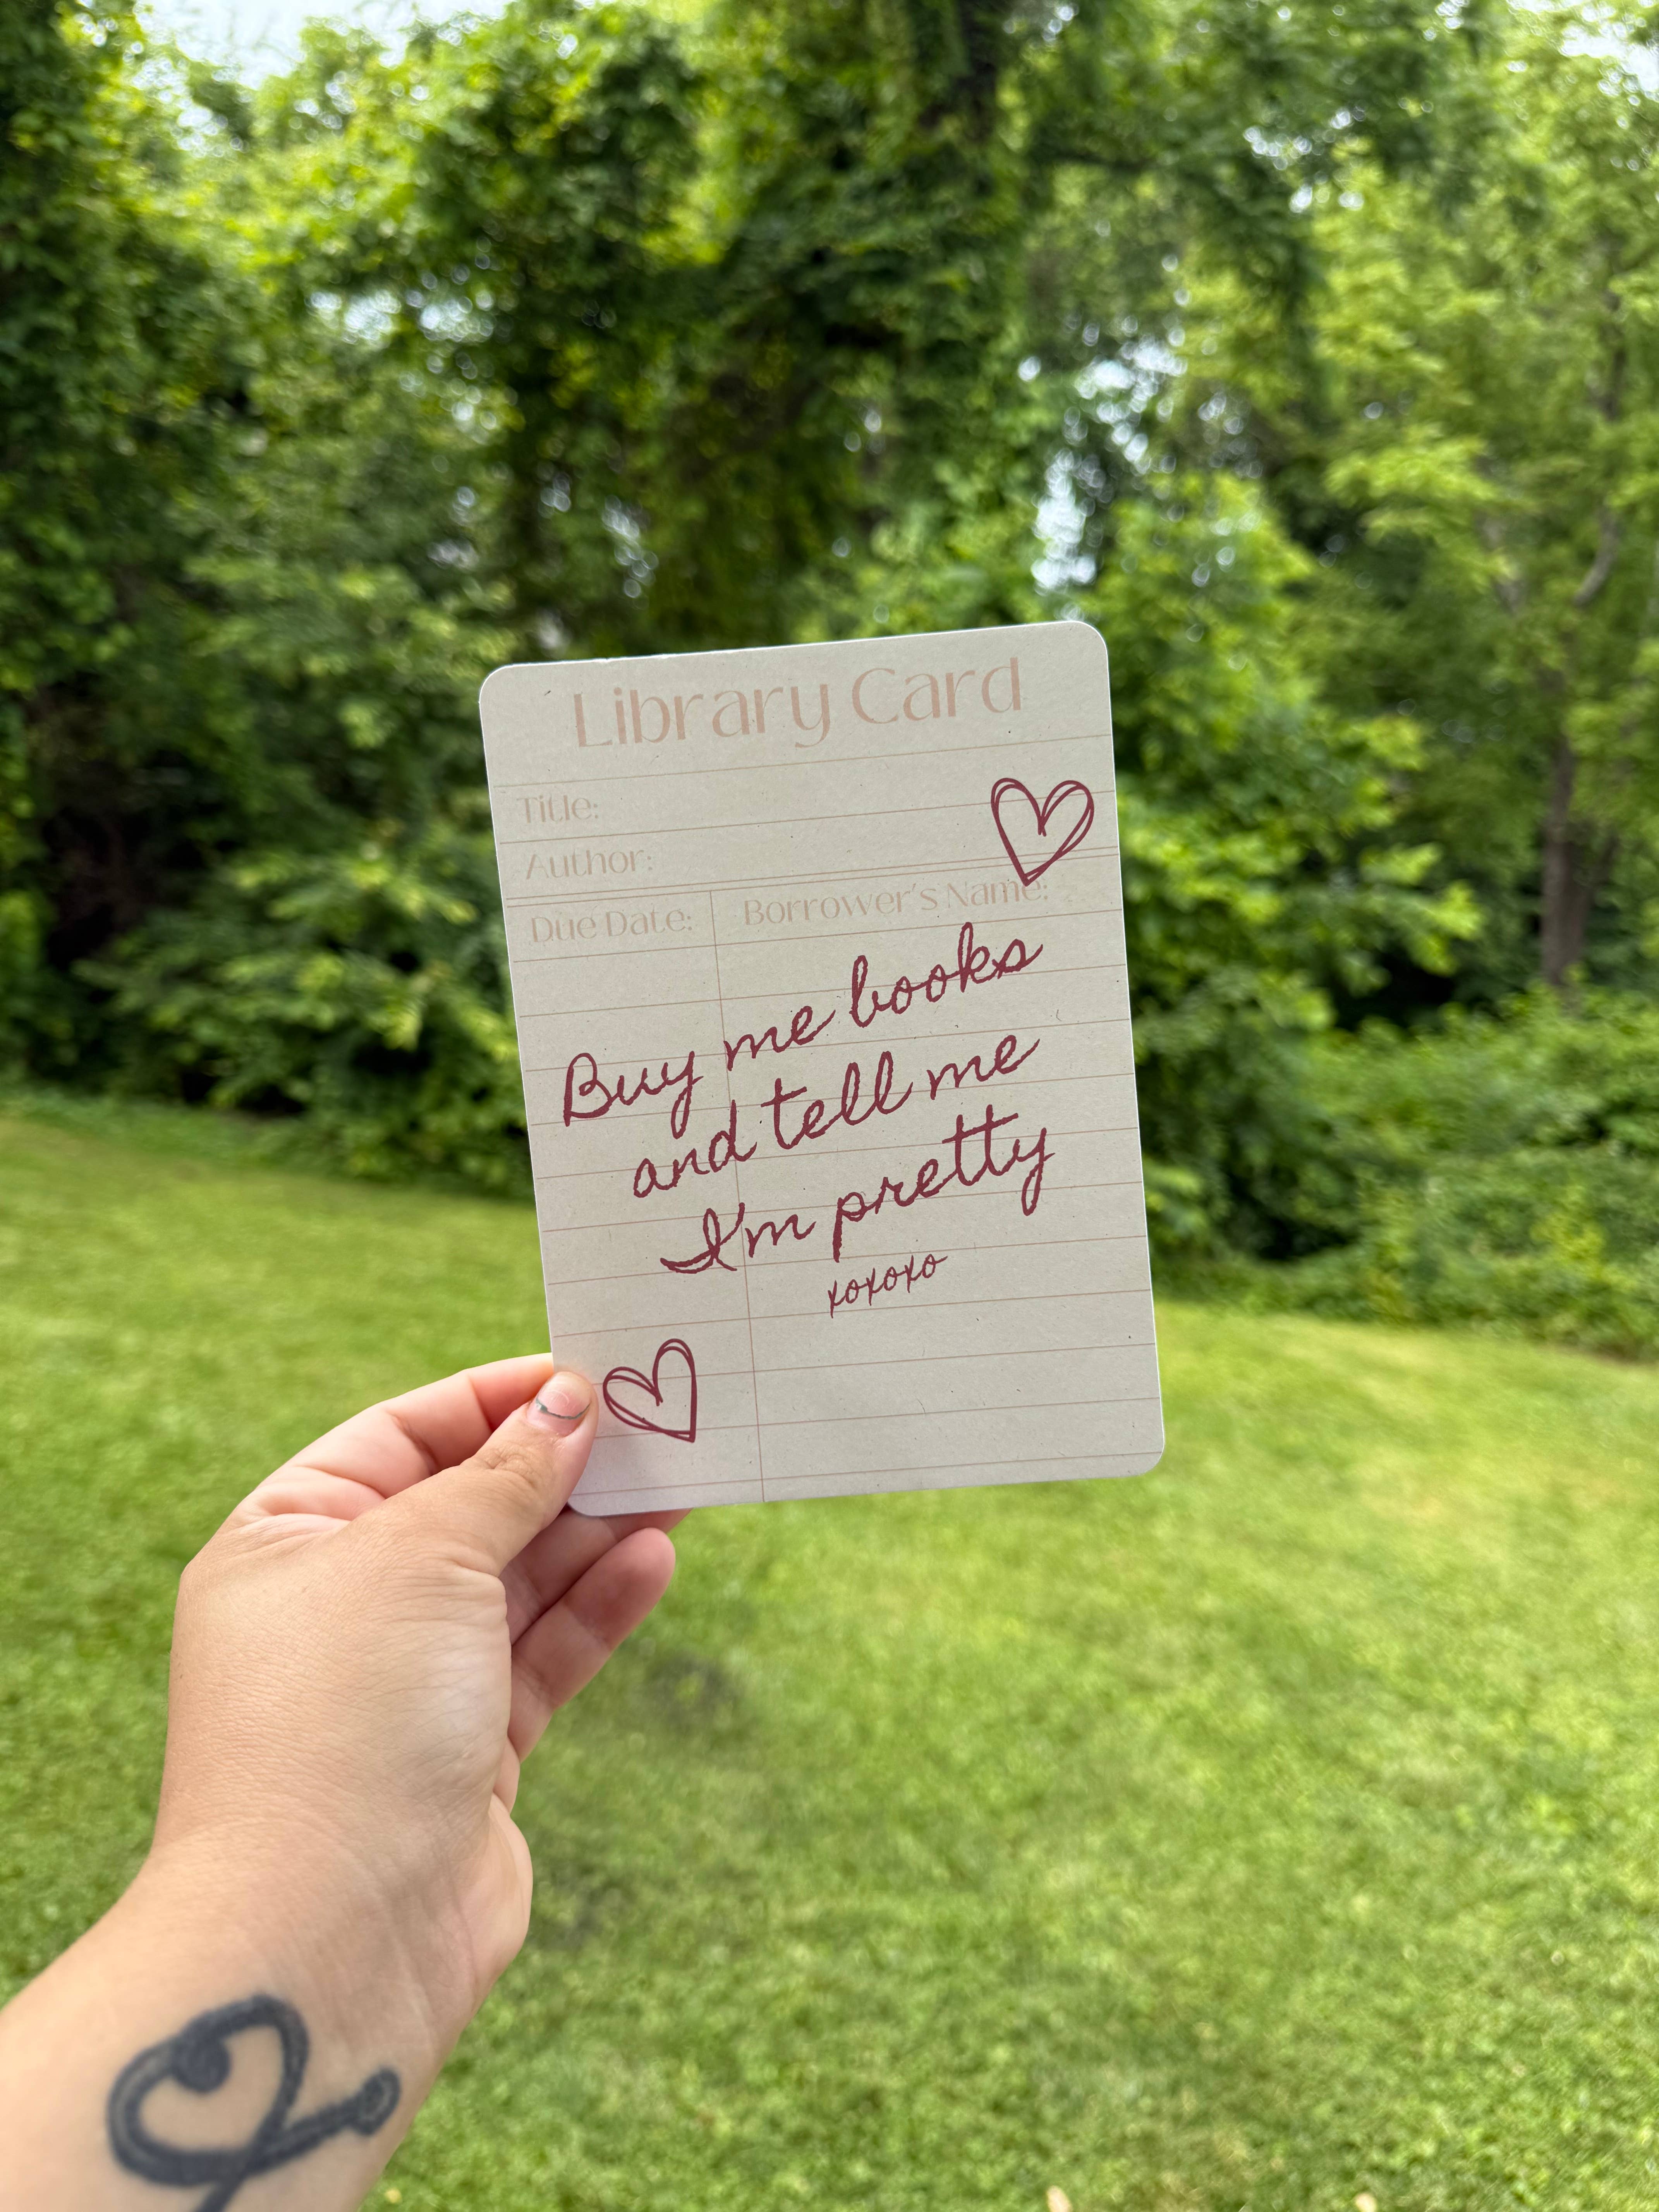 Library Card
Title:
Author:
Due Date: Borrower's Name:
Buy me books
and tell me
I'm pretty
xoxoxo